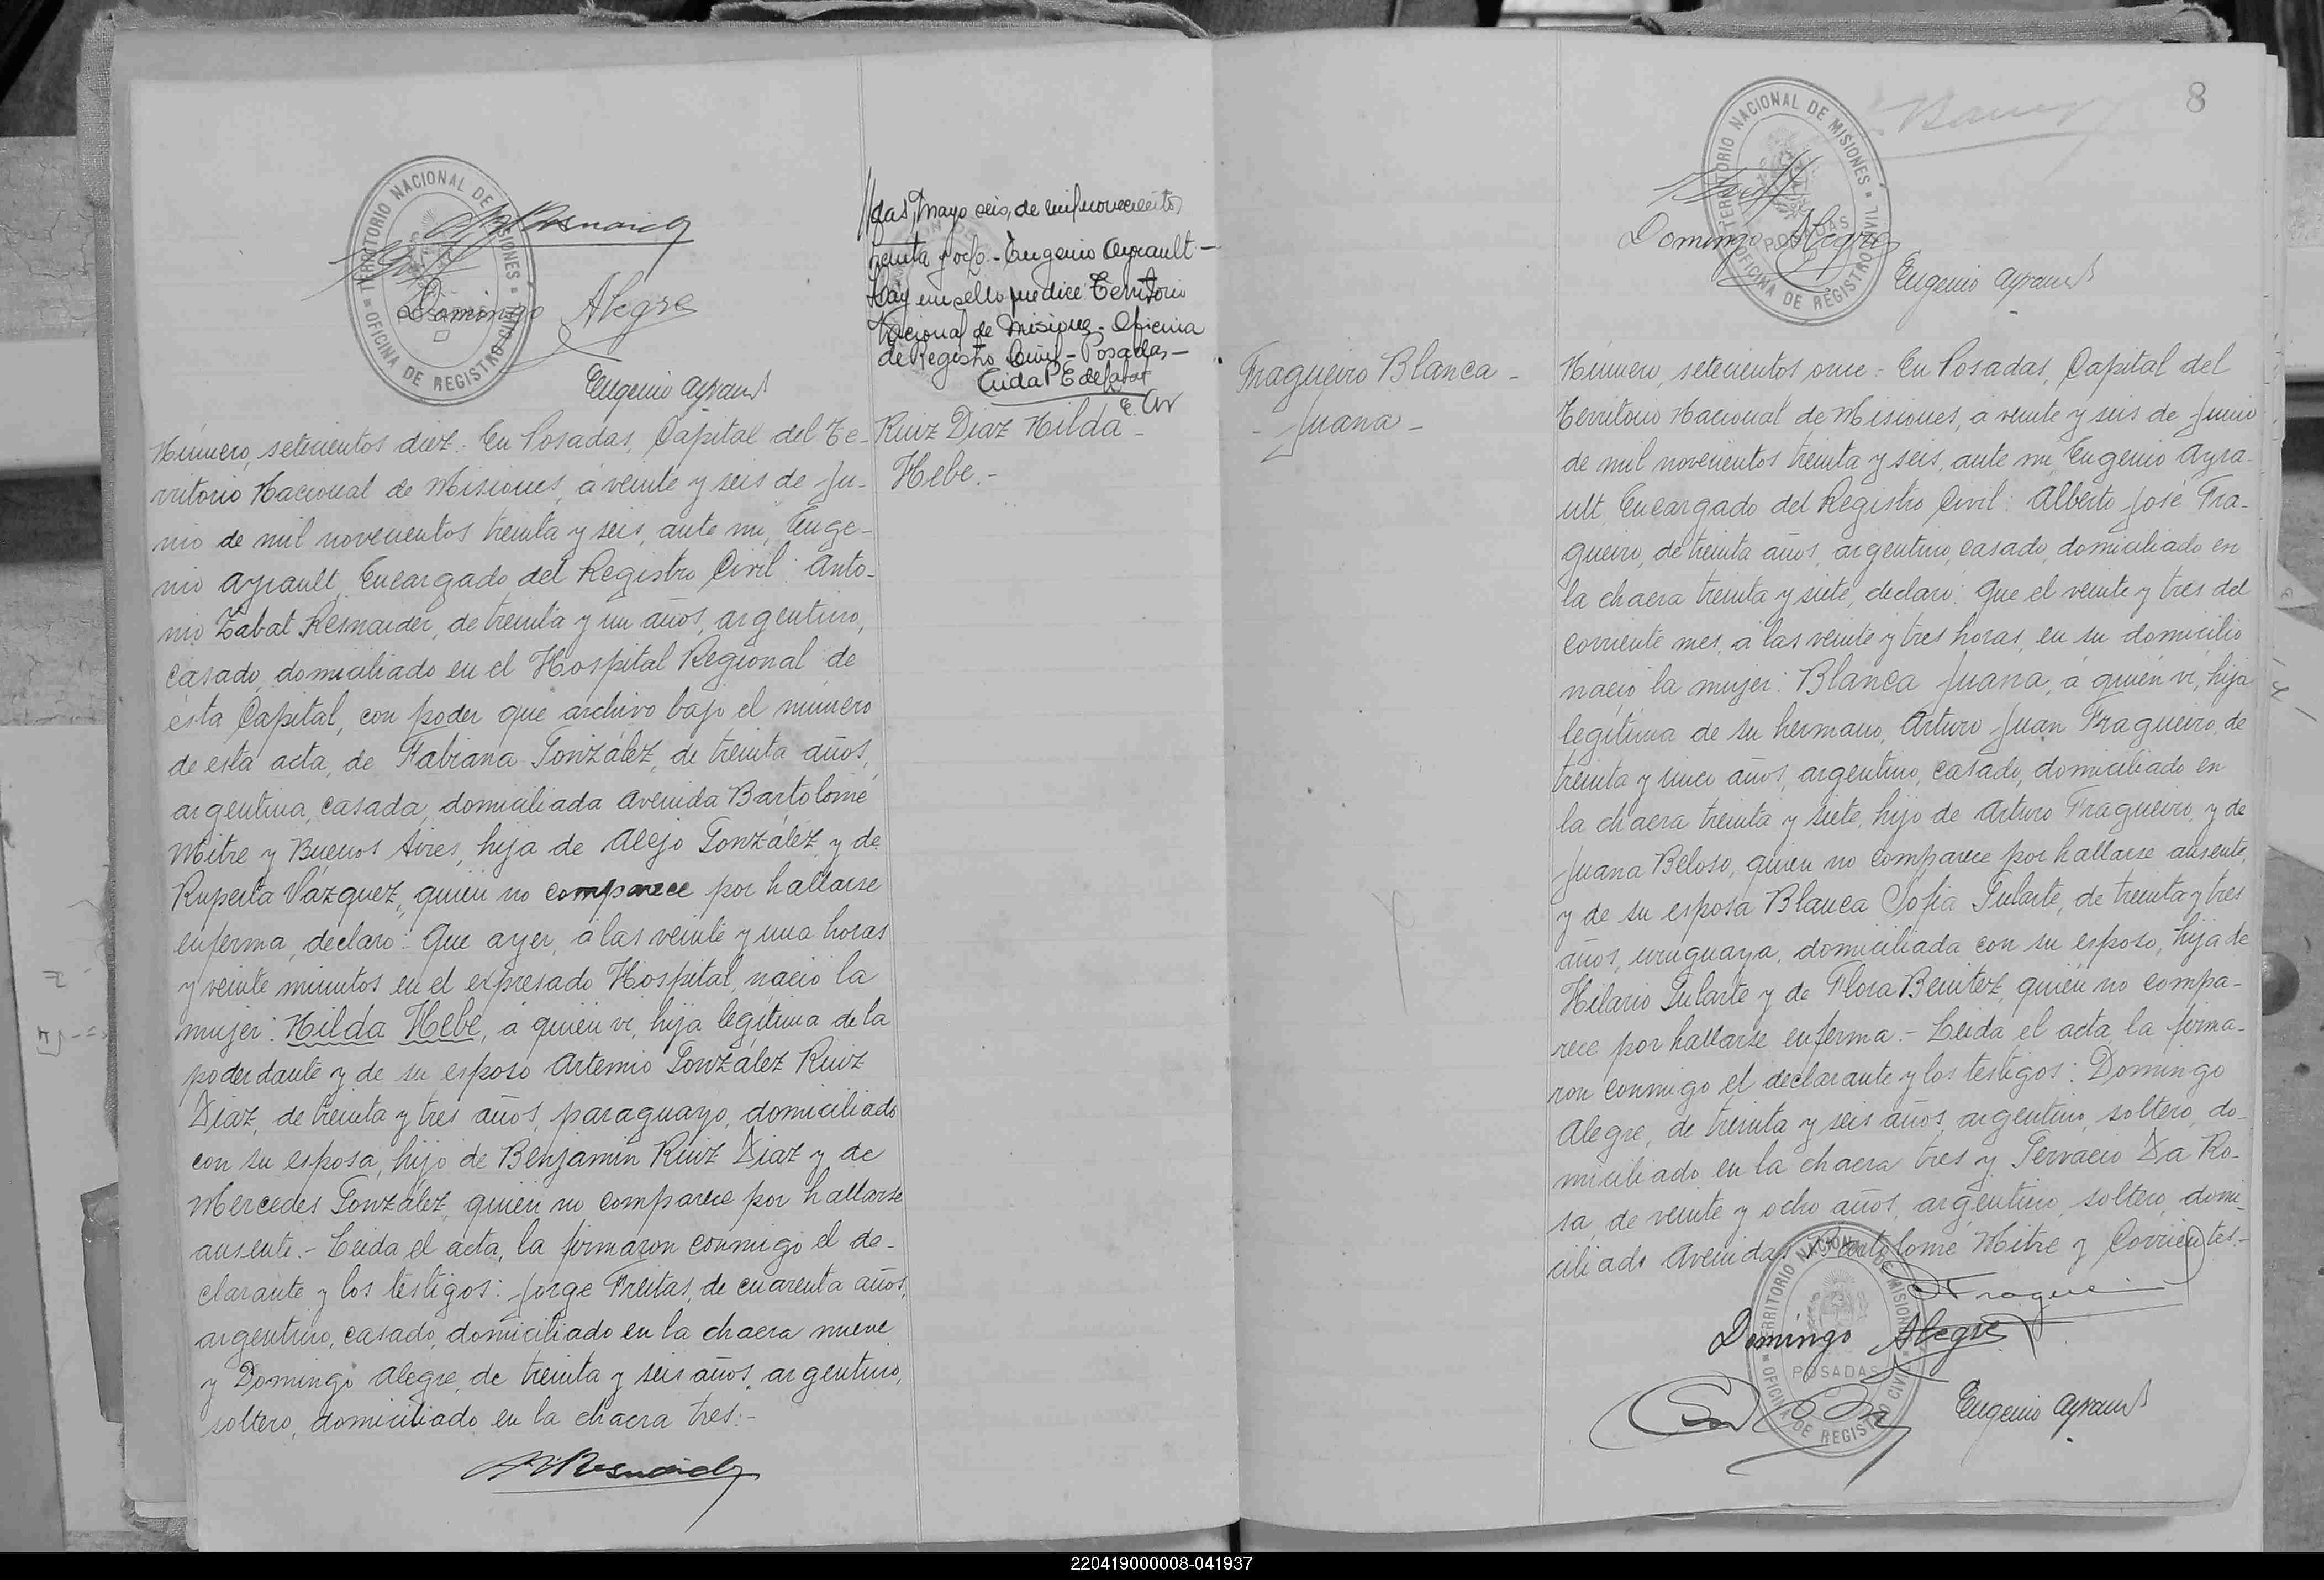 TERRITORIO NACIONAL DE MISIONES
OFICINA DE REGISTRO CIVIL
Domingo Alegre
Eugenio Ayrault
Número, setecientos diez: En Posadas, Capital del Te-
rritorio Nacional de Misiones, a veinte y seis de Ju-
nio de mil novecientos treinta y seis, ante mi, Euge-
nio Ayrault, Encargado del Registro Civil: Anto-
nio Zabat Resnaider, de treinta y un años, argentino,
casado, domiciliado en el Hospital Regional de
ésta Capital, con poder que archivo bajo el número
de esta acta, de Fabiana González, de treinta años,
argentina, casada, domiciliada Avenida Bartolomé
Mitre y Buenos Aires, hija de Alejo González y de
Ruperta Vázquez, quien no comparece por hallarse
enferma, declaró: Que ayer, a las veinte y una horas
y veinte minutos en el expresado Hospital, nació la
mujer: Hilda Hebe, a quien vi, hija legítima de la
poderdante y de su esposo Artemio González Ruiz
Diaz, de treinta y tres años, paraguayo, domiciliado
con su esposa, hijo de Benjamin Ruiz Diaz y de
Mercedes González, quien no comparece por hallarse
ausente.- Leida el acta, la firmaron conmigo el de-
clarante y los testigos: Jorge Freitas, de cuarenta años,
argentino, casado, domiciliado en la chacra nueve
y Domingo Alegre, de treinta y seis años, argentino,
soltero, domiciliado en la chacra tres.-
//das, Mayo seis, de mil novecientos
treinta y ocho.- Eugenio Ayrault-
Hay un sello que dice: Territorio
Nacional de Misiones- Oficina
de Registro Civil- Posadas-
E. Ay
Ruiz Diaz Hilda-
Hebe.-
Fragueiro Blanca-
-Juana-
8
TERRITORIO NACIONAL DE MISIONES
POSADAS
OFICINA DE REGISTRO CIVIL
Domingo Alegre
Eugenio Ayrault
Número, setecientos once: En Posadas, Capital del
Territorio Nacional de Misiones, a veinte y seis de Junio
de mil novecientos treinta y seis, ante mi, Eugenio Ayra-
ult, Encargado del Registro Civil: Alberto José Fra-
gueiro, de treinta años, argentino, casado, domiciliado en
la chacra treinta y siete, declaró: Que el veinte y tres del
corriente mes, a las veinte y tres horas, en su domicilio
nació la mujer: Blanca Juana, a quien vi, hija
legítima de su hermano, Arturo Juan Fragueiro, de
treinta y cinco años, argentino, casado, domiciliado en
la chacra treinta y siete, hijo de Arturo Fragueiro y de
Juana Beloso, quien no comparece por hallarse ausente,
y de su esposa Blanca Sofia Gularte, de treinta y tres
años, uruguaya, domiciliada con su esposo, hija de
Hilario Gularte y de Flora Benitez, quien no compa-
rece por hallarse enferma.- Leida el acta la firma-
ron conmigo el declarante y los testigos: Domingo
Alegre, de treinta y seis años, argentino, soltero, do-
miciliado en la chacra tres y Gervacio Da Ro-
sa, de veinte y ocho años, argentino, soltero, domi-
ciliado Avenidas Bartolomé Mitre y Corrientes.-
TERRITORIO NACIONAL DE MISIONES
POSADAS
OFICINA DE REGISTRO CIVIL
Domingo Alegre
Eugenio Ayrault
220419000008-041937